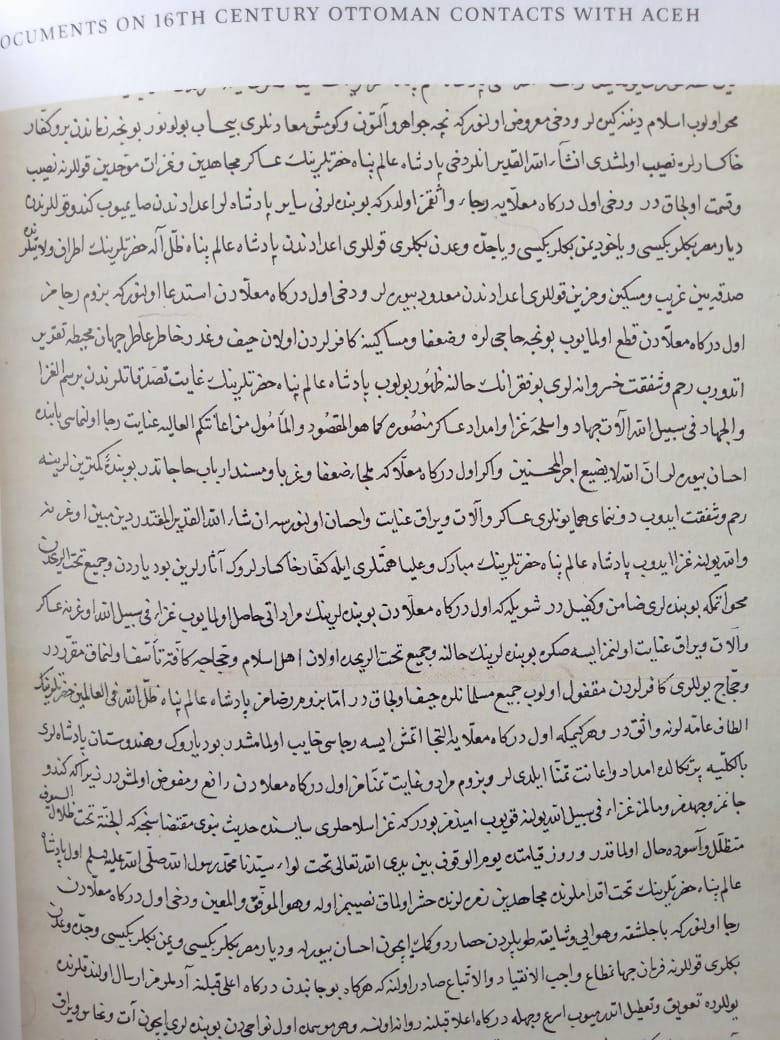 OCUMENTS ON 16TH CENTURY OTTOMAN CONTACTS WITH ACEH
محو اولوب اسلام دیننه کیرن لر ودخی معروض اولنور که نچه جواهر و آلتون وکومش معادنلری بیحساب بولونور بونجه زماندن برو کفار
خاکسارلره نصیب اولمشدی انشاء الله القدیر انلر دخی پادشاه عالم پناه حضرتلرینك عساکر مجاهدین وغزات موحدین قوللرینه نصیب
وقسمت اولجاق در ودخی اول درکاه معلایه رجا واثقمز اولدر که بو بنده لرنی سایر پادشاه لر اعدادندن صایمیوب کندو قوللرندن
دیار مصر بکلربکیسی ویاخود یمن بکلربکیسی ویا جده وعدن بکلری قوللری اعدادندن پادشاه عالم پناه ظل اله حضرتلرینك اطراف ولایتلرنده
صدقه یین غریب ومسکین وحزین قوللری اعدادندن معدود بیوره لر ودخی اول درکاه معلادن استدعا اولنور که بزوم رجامز
اول درکاه معلادن قطع اولمایوب بونجه حاجی لره وضعفا ومساکینه کافرلردن اولان حیف وغدر خاطر عاطر جهان محیطه تقدیر
اتدورب رحم وشفقت خسروانه لری بو فقرانك حالنه ظهور بولوب پادشاه عالم پناه حضرتلرینك غایت تصدقاتلرندن برسم الغزا
والجهاد فی سبیل الله آلات جهاد واسلحهٔ غزا وامداد عساکر منصوره کما هو المقصود والمأمول من اعانتکم العالیه عنایت رجا اولنماسی بابنده
احسان بیوره لر ان الله لا یضیع اجر المحسنین واکر اول درکاه معلا که ملجاء ضعفا وغربا ومسند ارباب حاجاتدر بو بندهٔ کمترین لرینه
رحم وشفقت ایدوب دوننمای همایونلری عساکر وآلات ویراق عنایت واحسان اولنورسه ان شاء الله القدیر المقتدر دین مبین اوغرینه
والله یولنه غزا ایدوب پادشاه عالم پناه حضرتلرینك مبارك وعلیا همتلری ایله کفار خاکسارلروك آثارلرین بو دیاردن وجمیع تحت الریحدن
محو اتمکه بو بنده لری ضامن وکفیل در شویله که اول درکاه معلادن بو بنده لرینك مراداتی حاصل اولمایوب غزاء فی سبیل الله اوغرینه عساکر
وآلات ویراق عنایت اولنمز ایسه صکره بو بنده لرینك حالنه وجمیع تحت الریحده اولان اهل اسلام وحجاجه کافة تأسف اولنماق مقرر در
وحجاج یوللری کافرلردن مقفول اولوب جمیع مسلمانلره حیف اولجاق در اما بزوم رضامز پادشاه عالم پناه ظل الله فی العالمین حضرتلرینك
الطاف عامه لرنه واثق در وهر کیمکه اول درکاه معلایه التجا اتمش ایسه رجاسی خایب اولمامشدر بو دیاروك وهندوستان پادشاه لری
بالکلیه پرتکالده امداد واعانت تمنا ایلدی لر وبزوم مراد وغایت تمنامز اول درکاه معلادن رافع ومفوض اولمشدر زیرا که کندو
جانمز وجهدمز ومالمز غزاء فی سبیل الله یولنه قویوب امیدمز بودر که غزا سلاحلری سایسنده حدیث نبوی مقتضاسنجه که الجنة تحت ظلال السیوف
متظلل وآسوده حال اولماقدر وروز قیامتده یوم الوقوف بین یدی الله تعالی تحت لواء سیدنا محمد رسول الله صلی الله علیه وسلم اول پادشاه
عالم پناه حضرتلرینك تحت اقداملرنده مجاهدین زمره لرنده حشر اولماق نصیبمز اوله وهو الموفق والمعین ودخی اول درکاه معلادن
رجا اولنور که باجلشقه وهوایی وشایقه طوپلردن حصار دوکمك ایچون احسان بیوریله ودیار مصر بکلربکیسی ویمن بکلربکیسی وجده وعدن
بکلری قوللرنه فرمان جهانمطاع واجب الانقیاد والاتباع صادر اولنه که هرکاه بو جانبدن درکاه اعلی قبلنه آدملرمز ارسال اولندقلرنده
یوللرده تعویق وتعطیل اتدرمیوب اسرع وجهله درکاه اعلا قبلنه روانه اولنه وهر موسمده اول نواحی دن بو بنده لری ایچون آت ونحاس ویراق